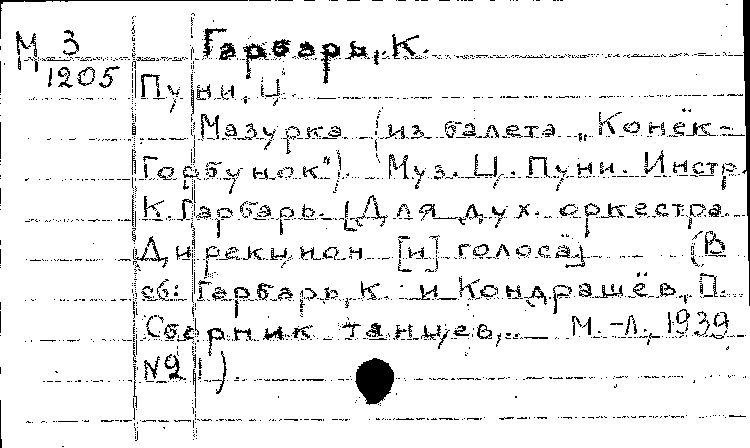 М 3 Гарбарь, К.
1205
Пуни, Ц.
Мазурка (из балета „Конёк-
Горбунок"). Муз. Ц. Пуни. Инстр.
К. Гарбарь. [Для дух. оркестра.
Дирекцион [и] голоса] (В
сб: Гарбарь, К. и Кондрашёв, П.
Сборник танцев,.. М.-Л., 1939
№21).